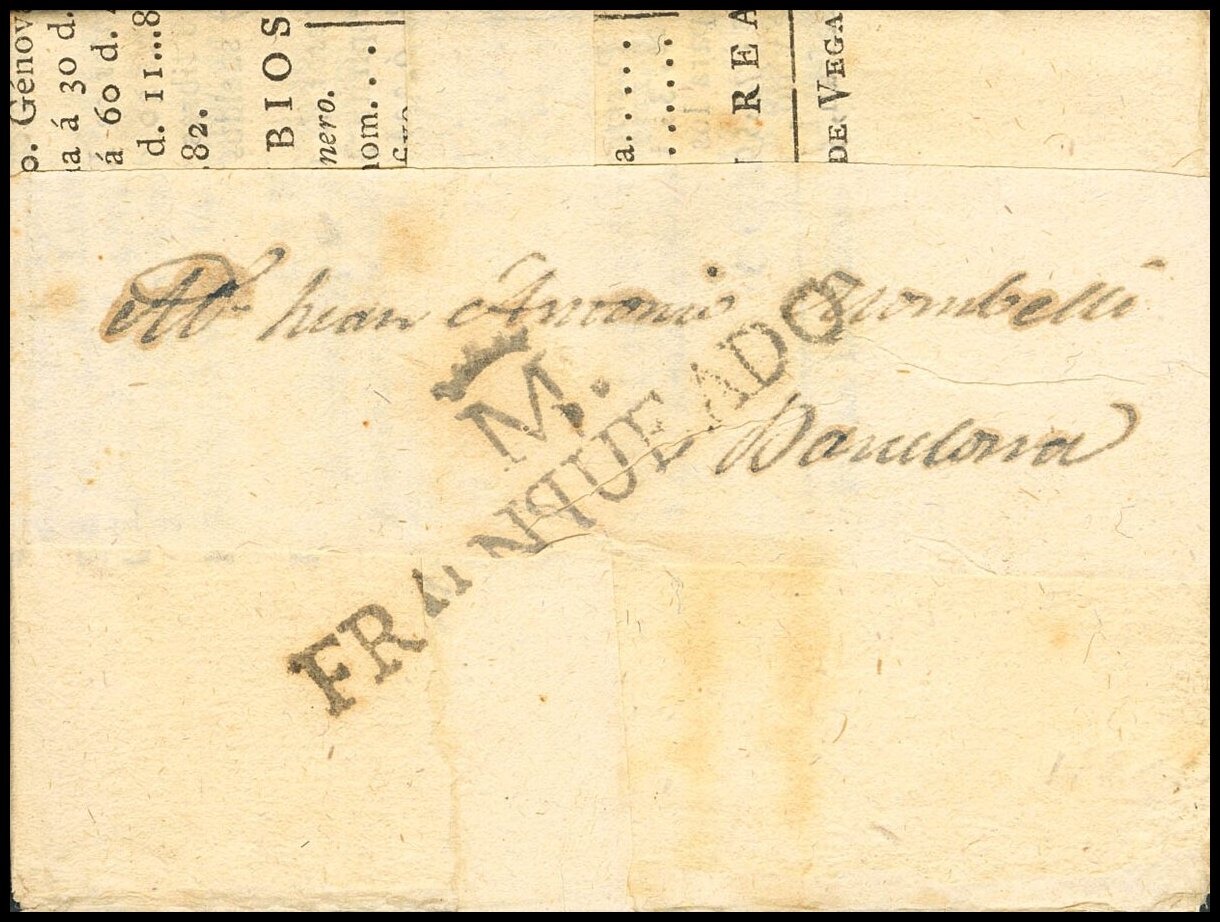 o. Génov
a á 30 d.
á 60 d.
d. 11...8
82.
BIOS
nero.
nom. . .
a. . . . .
. . . . . .
REA
DE VEGA
Juan Antonio Mombelli
Barcelona
M.
FRANQUEADO